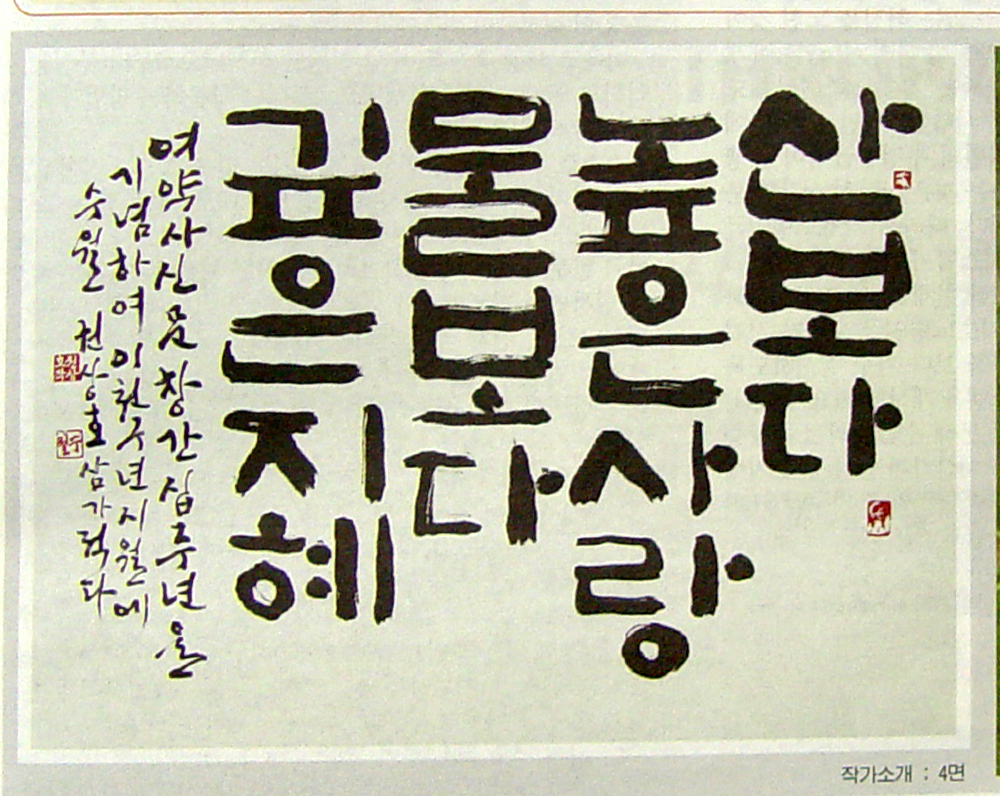 산보다
높은사랑
물보다
깊은지혜
여약사신문창간십주년을
기념하여 이천구년시월에
수월 권상호 삼가적다
작가소개 : 4면